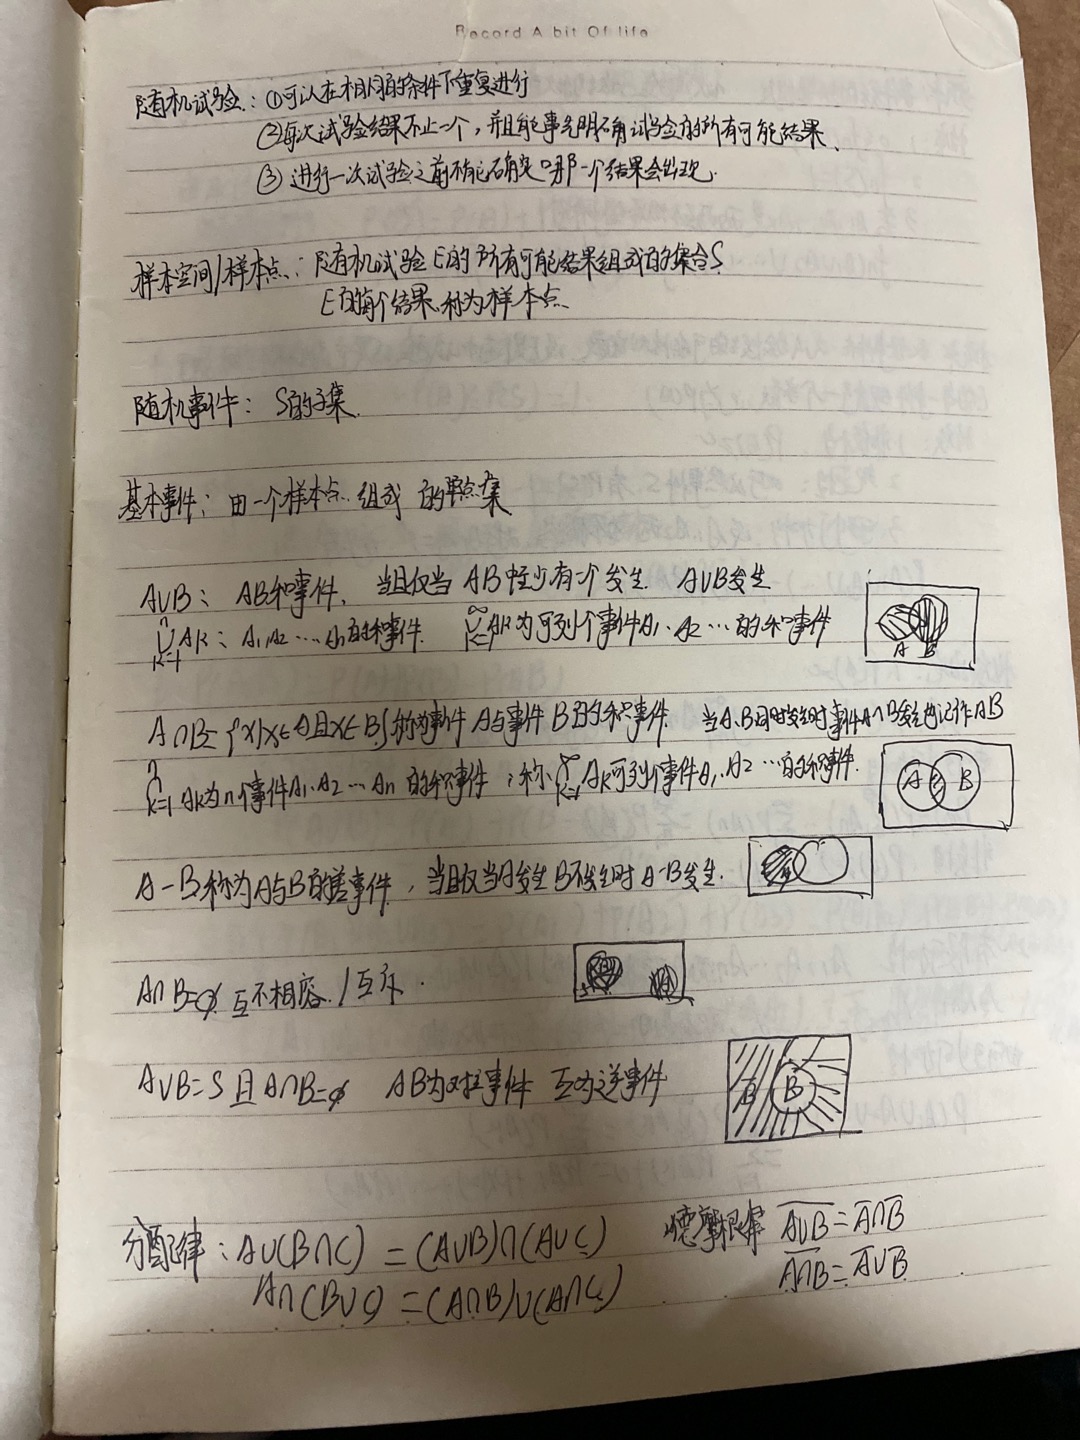 Record A bit Of life
随机试验：①可以在相同的条件下重复进行
②每次试验结果不止一个，并且能事先明确试验的所有可能结果、
③ 进行一次试验之前不能确定哪一个结果会出现.
样本空间/样本点：随机试验E的所有可能结果组成的集合S
E的每个结果.称为样本点.
随机事件： S的子集.
基本事件：由一个样本点.组成 的单点集
A∪B： AB和事件、 当且仅当 AB中至少有一个发生. A∪B发生
n ∪ k=1 Ak：A₁,A₂…An的和事件. ∞ ∪ k=1 Ak为可列个事件A₁、A₂…的和事件
A B
A∩B={x|x∈A且x∈B}称为事件A与事件B的的积事件. 当A.B同时发生时事件A∩B发生也记作AB
n ∩ k=1 Ak为n个事件A₁、A₂…An 的积事件；称 ∞ ∩ k=1 Ak可列个事件A₁、A₂…的积事件.
A B
A-B称为A与B的差事件，当且仅当A发生B不发生时A-B发生.
A∩B=∅ 互不相容./互斥.
A∪B=S且A∩B=∅ AB为对立事件 互为逆事件
B
分配律：A∪(B∩C)=(A∪B)∩(A∪C) 德摩根律 A̅∪̅B̅=A̅∩B̅
A∩(B∪C)=(A∩B)∪(A∩C) A̅∩̅B̅=A̅∪B̅